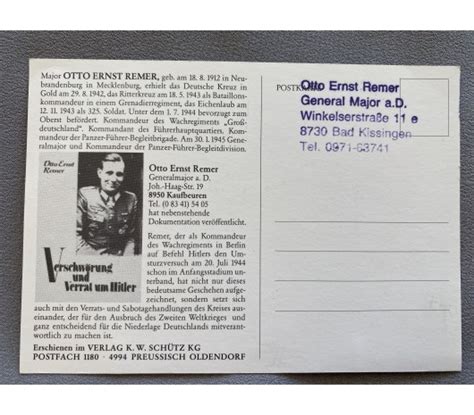 Major OTTO ERNST REMER, geb. am 18. 8. 1912 in Neu-
brandenburg in Mecklenburg, erhielt das Deutsche Kreuz in
Gold am 29. 8. 1942, das Ritterkreuz am 18. 5. 1943 als Bataillons-
kommandeur in einem Grenadierregiment, das Eichenlaub am
12. 11. 43 als 325. Soldat. Unter dem 1. 7. 1944 bevorzugt zum
Oberst befördert. Kommandeur des Wachregiments „Groß-
deutschland". Kommandant des Führerhauptquartiers, Komman-
deur der Panzer-Führer-Begleitbrigade. Am 30. 1. 1945 General-
major und Kommandeur der Panzer-Führer-Begleitdivision.
Otto Ernst
Remer
Verschwörung
und
Verrat um Hitler
Otto Ernst Remer
Generalmajor a. D.
Joh.-Haag-Str. 19
8950 Kaufbeuren
Tel. (0 83 41) 54 05
hat nebenstehende
Dokumentation veröffentlicht.
Remer, der als Kommandeur
des Wachregiments in Berlin
auf Befehl Hitlers den Um-
sturzversuch am 20. Juli 1944
schon im Anfangsstadium un-
terband, hat nicht nur dieses
bedeutsame Geschehen aufge-
zeichnet, sondern setzt sich
auch mit den Verrats- und Sabotagehandlungen des Kreises aus-
einander, der für den Ausbruch des Zweiten Weltkrieges und
ganz entscheidend für die Niederlage Deutschlands mitverant-
wortlich zu machen ist.
Erschienen im VERLAG K. W. SCHÜTZ KG
POSTFACH 1180 · 4994 PREUSSISCH OLDENDORF
Otto Ernst Remer
General Major a.D.
Winkelserstraße 11 e
8730 Bad Kissingen
Tel. 0971-63741